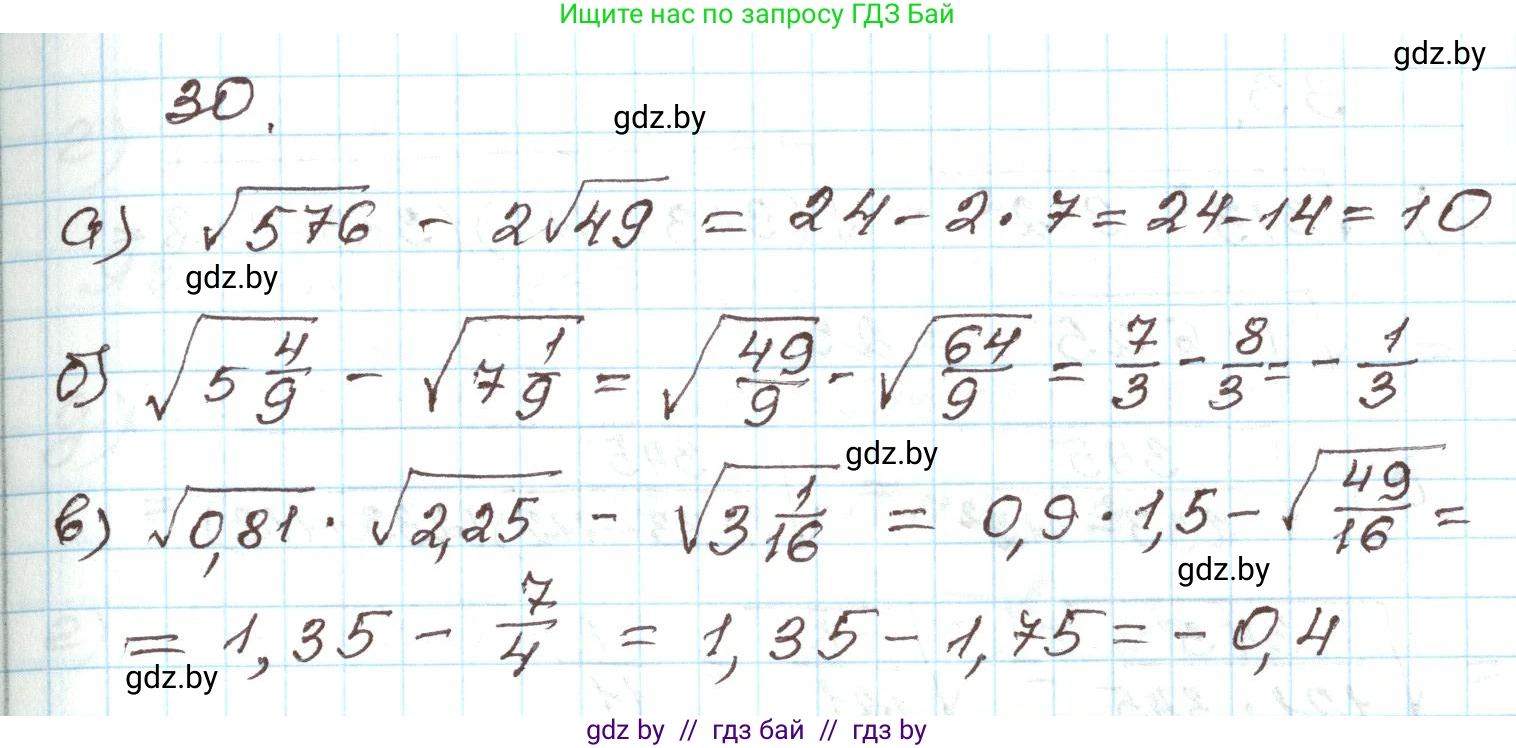 Ищите нас по запросу ГДЗ Бай
gdz.by
30.
gdz.by
а) √576 - 2√49 = 24 - 2 · 7 = 24 - 14 = 10
gdz.by
б) √(5 4/9) - √(7 1/9) = √(49/9) - √(64/9) = 7/3 - 8/3 = - 1/3
gdz.by
в) √0,81 · √2,25 - √(3 1/16) = 0,9 · 1,5 - √(49/16) =
gdz.by
= 1,35 - 7/4 = 1,35 - 1,75 = - 0,4
gdz.by
gdz by // гдз бай // гдз by